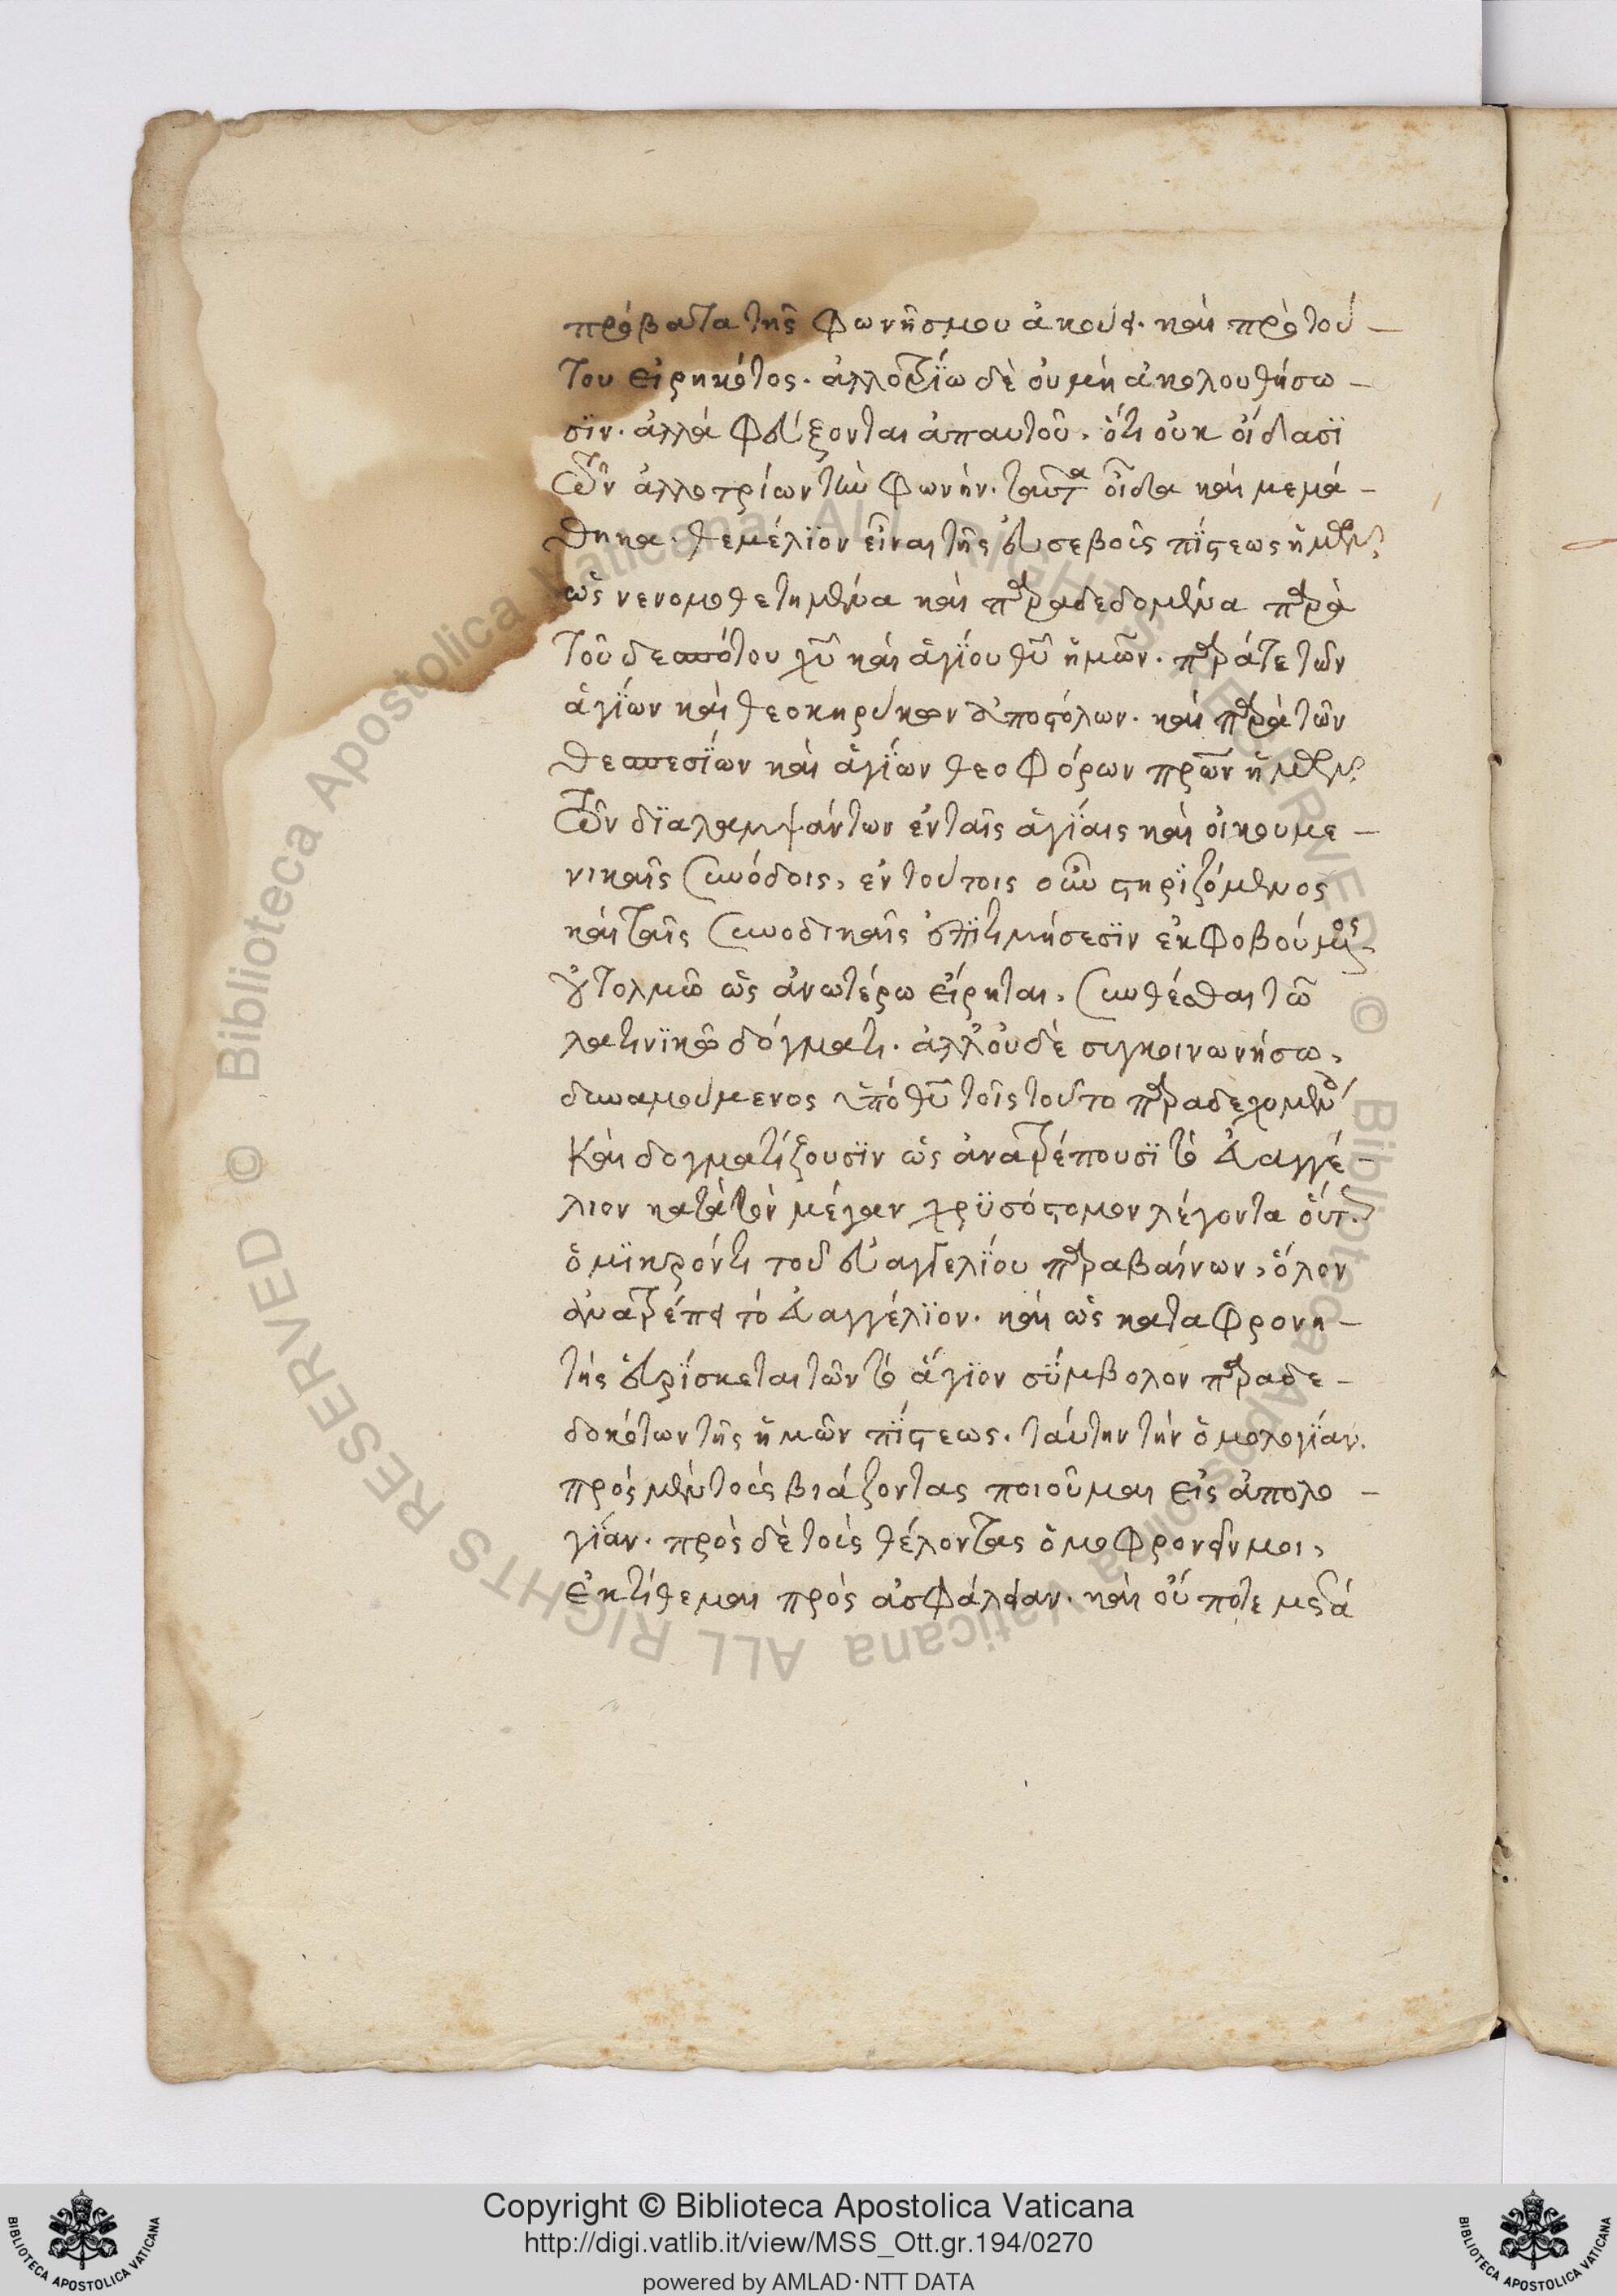 πρόβατα τῆς φωνῆς μου ἀκούει. καὶ πρὸ τού -
του εἰρηκότος. ἀλλοτρίω δὲ οὐ μὴ ἀκολουθήσω -
σϊν. ἀλλὰ φεύξονται ἀπαυτοῦ. ὅτι οὐκ οἴδασϊ
τῶν ἀλλοτρίων τὴν φωνήν. ταῦτα οἶδα καὶ μεμά -
θηκα. θεμέλϊον εἶναι τῆς εὐσεβοῦς πΐστεως ἡμῶν,
ὡς νενομοθετημένα καὶ παραδεδομένα παρὰ
τοῦ δεσπότου χῦ καὶ ἁγΐου θῦ ἡμῶν. παράτε τῶν
ἁγΐων καὶ θεοκηρύκων ἀποστόλων. καὶ παρὰ τῶν
θεσπεσΐων καὶ ἁγΐων θεοφόρων πρῶν ἡμῶν,
τῶν δϊαλαμψάντων ἐν ταῖς ἁγΐαις καὶ οἰκουμε -
νικαῖς συνόδοις, ἐν τούτοις οὖν στηρϊζόμενος
καὶ ταῖς συνοδικαῖς ἐπϊτιμήσεσϊν ἐκφοβούμενος
οὐ τολμῶ ὡς ἀνωτέρω εἴρηται, συνθέσθαι τῶ
λατινϊκῶ δόγματι. ἀλλ' οὐδὲ συγκοινωνήσω,
δυναμούμενος ὑπὸ θῦ τοῖς τοῦτο παραδεχομένοις
Καὶ δογματίζουσϊν ὡς ἀνατρέπουσϊ τὸ εὐαγγέ -
λιον κατὰ τὸν μέγαν χρϋσόστομον λέγοντα οὕτως
ὁ μϊκρόν τι τοῦ εὐαγγελΐου παραβαίνων, ὅλον
ἀνατρέπει τὸ εὐαγγέλϊον. καὶ ὡς καταφρονη -
τής εὑρΐσκεται τῶν τὸ ἅγϊον σΰμβολον παραδε -
δοκότων τῆς ἡμῶν πΐστεως. ταύτην τὴν ὁμολογΐαν.
πρὸς μὲν τοὺς βιάζοντας ποιοῦμαι εἰς ἀπολο -
γΐαν. πρὸς δὲ τοὺς θέλοντας ὁμοφρονεῖν μοι,
ἐκτίθεμαι πρὸς ἀσφάλειαν. καὶ οὔ ποτε μετὰ
Copyright © Biblioteca Apostolica Vaticana
http://digi.vatlib.it/view/MSS_Ott.gr.194/0270
powered by AMLAD·NTT DATA